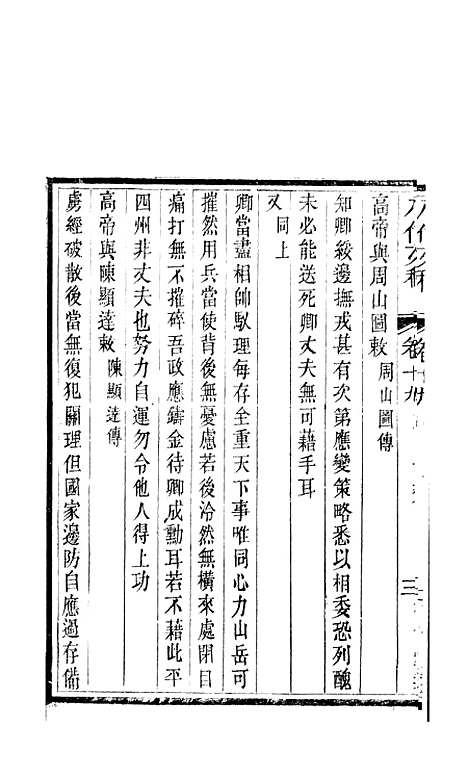 高帝與周山圖敕 周山圖傳
知卿綏邊撫戎甚有次第應變策略悉以相委恐列醜
未必能送死卿丈夫無可藉手耳
又同上
卿當盡相帥馭理每存全重天下事唯同心力山岳可
摧然用兵當使背後無憂慮若後冷然無橫來處閉目
痛打無不摧碎吾政應鑄金待卿成勳耳若不藉此平
四州非丈夫也努力自運勿令他人得上功
高帝與陳顯達敕 陳顯達傳
虜經破散後當無復犯關理但國家邊防自應過存備
三